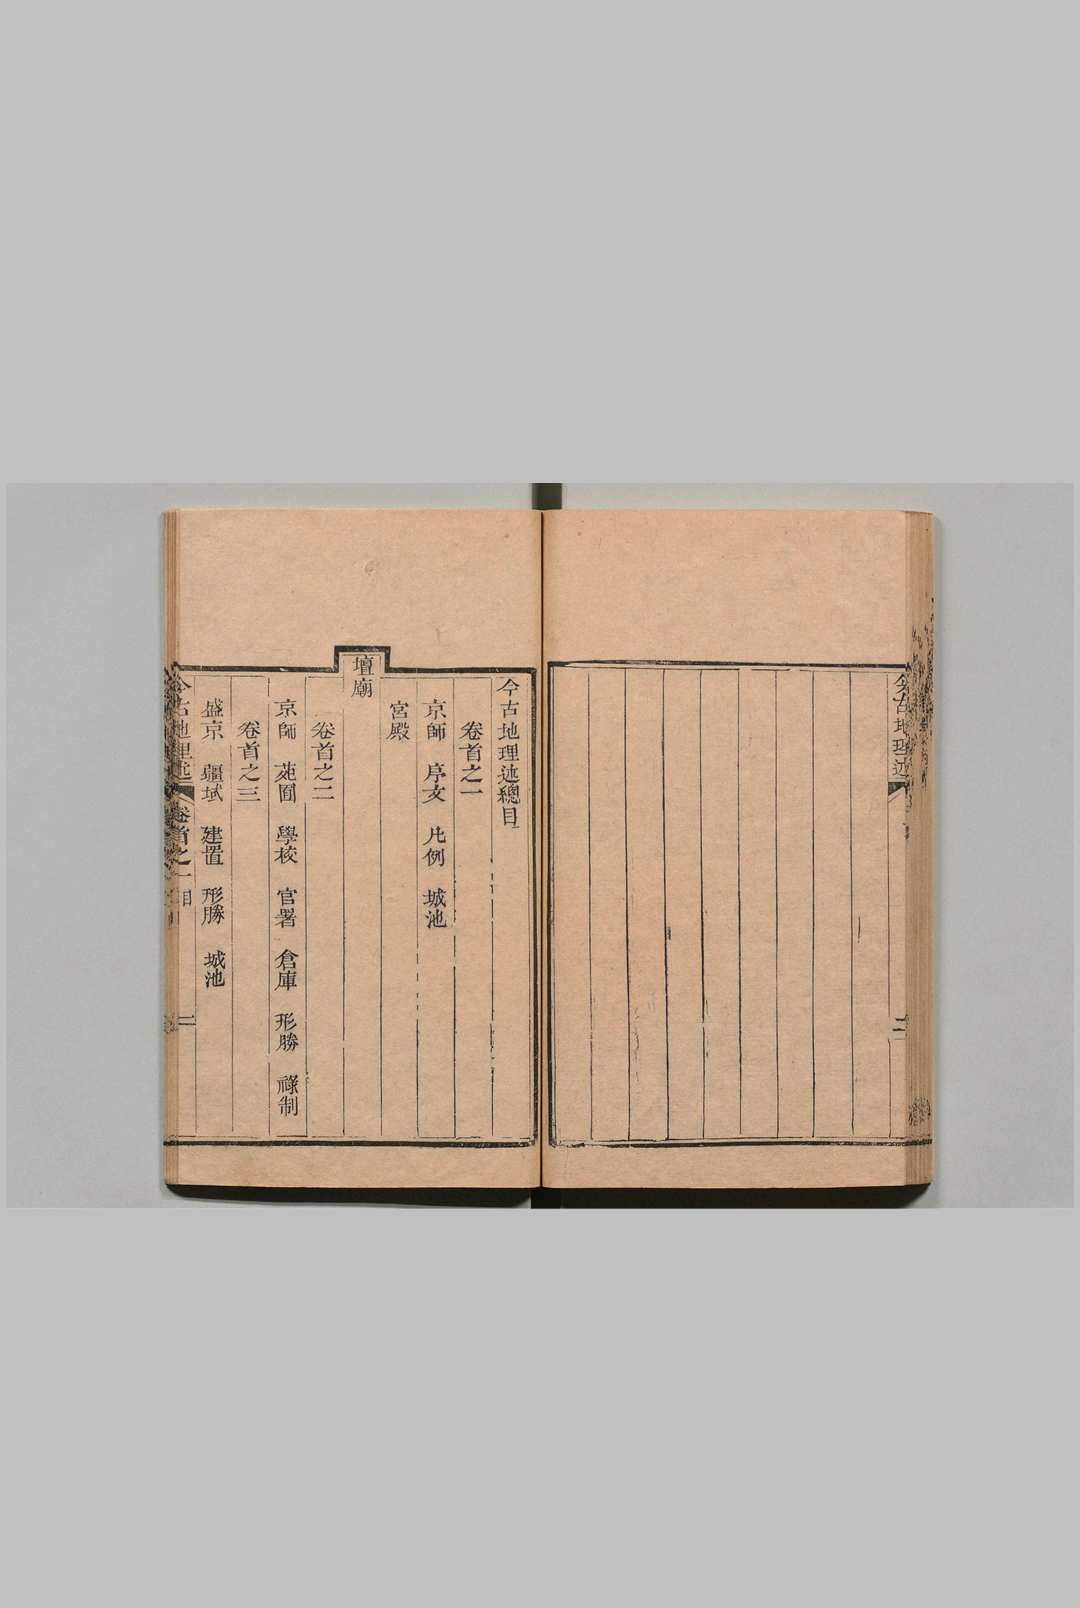 今古地理述
二
今古地理述總目
卷首之一
京師 序文 凡例 城池
宮殿
壇廟
卷首之二
京師 苑囿 學校 官署 倉庫 形勝 祿制
卷首之三
盛京 疆域 建置 形勝 城池
今古地理述 卷首之一 目 二